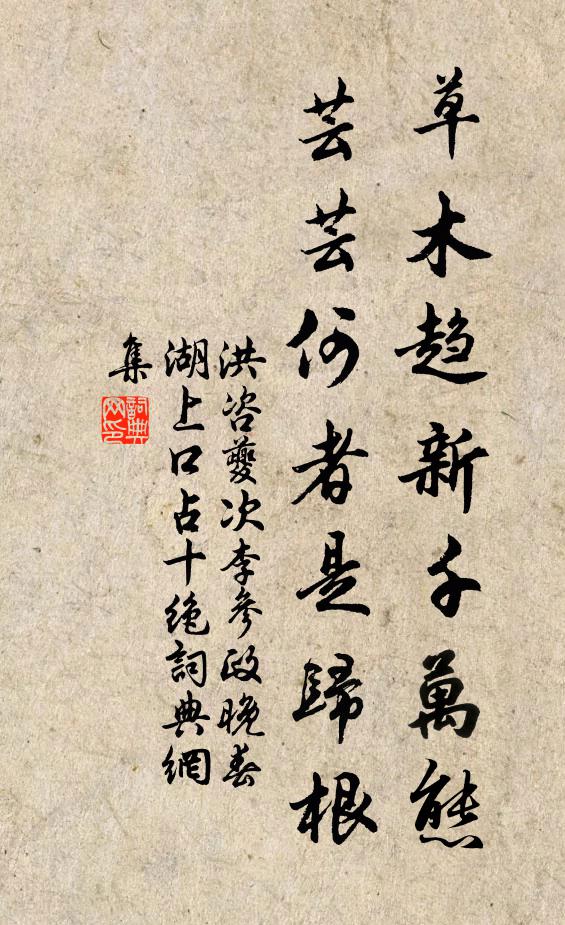 草木趋新千萬熊
芸芸何者是歸根
洪咨夔次李參政晚春
湖上口占十绝詞典網
集
詞典
网印